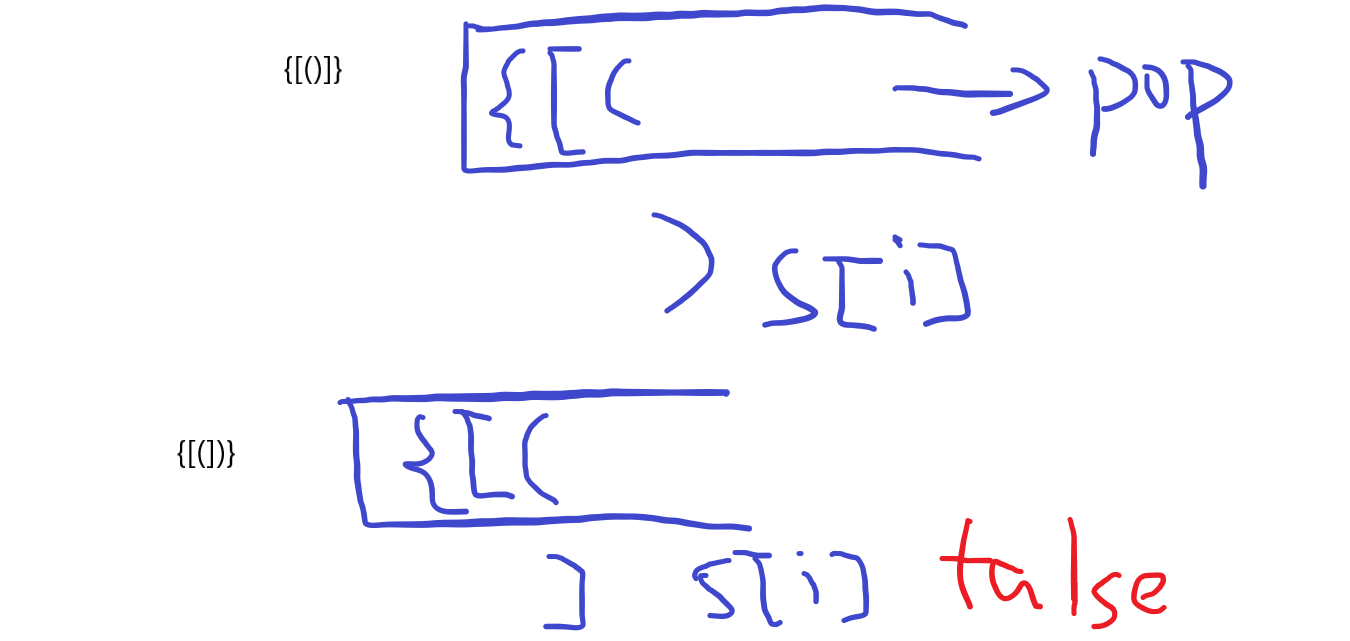 {[()]}
{ [ ( → pop
) s[i]
{[(])}
{ [ (
] s[i] false